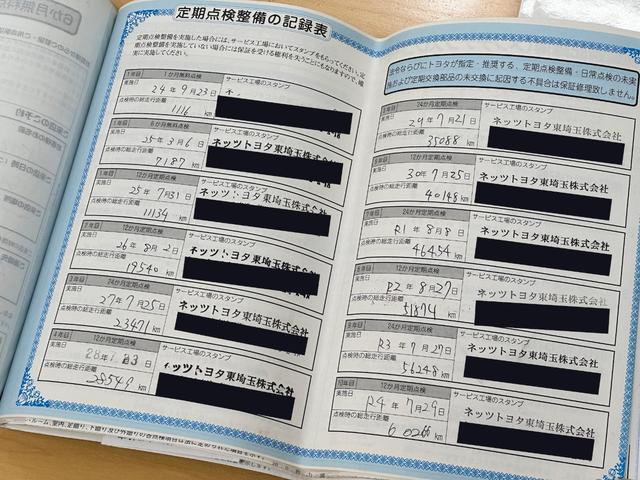 定期点検整備の記録表
定期点検整備を実施した場合には、サービス工場においてスタンプをもらってください。定
期点検整備を実施していない場合には保証を受ける権利を失うこともありますので、確
実に実施してください。
1年目 1か月無料点検 サービス工場のスタンプ
実施日 24年9月23日
点検時の総走行距離
1116 km
1年目 6か月無料点検 サービス工場のスタンプ
実施日 25年3月6日 ネッツトヨタ東埼玉株式会社
点検時の総走行距離
7187 km
1年目 12か月定期点検 サービス工場のスタンプ
実施日 25年7月31日 ネッツトヨタ東埼玉株式会社
点検時の総走行距離
11134 km
2年目 12か月定期点検 サービス工場のスタンプ
実施日 26年8月2日 ネッツトヨタ東埼玉株式会社
点検時の総走行距離
19540 km
3年目 24か月定期点検 サービス工場のスタンプ
実施日 27年7月25日 ネッツトヨタ東埼玉株式会社
点検時の総走行距離
23471 km
4年目 12か月定期点検 サービス工場のスタンプ
実施日 ネッツトヨタ東埼玉株式会社
点検時の総走行距離
km
法令ならびにトヨタが指定・推奨する、定期点検整備・日常点検の未実
施および定期交換部品の未交換に起因する不具合は保証修理致しません。
24か月定期点検 サービス工場のスタンプ
実施日 29年7月21日 ネッツトヨタ東埼玉株式会社
点検時の総走行距離
35088 km
12か月定期点検 サービス工場のスタンプ
実施日 30年7月25日 ネッツトヨタ東埼玉株式会社
点検時の総走行距離
40148 km
7年目 24か月定期点検 サービス工場のスタンプ
実施日 R1年8月8日 ネッツトヨタ東埼玉株式会社
点検時の総走行距離
46454 km
8年目 12か月定期点検 サービス工場のスタンプ
実施日 R2年8月27日 ネッツトヨタ東埼玉株式会社
点検時の総走行距離
51874 km
9年目 24か月定期点検 サービス工場のスタンプ
実施日 R3年7月27日 ネッツトヨタ東埼玉株式会社
点検時の総走行距離
56248 km
10年目 12か月定期点検 サービス工場のスタンプ
実施日 R4年7月29日 ネッツトヨタ東埼玉株式会社
点検時の総走行距離
km